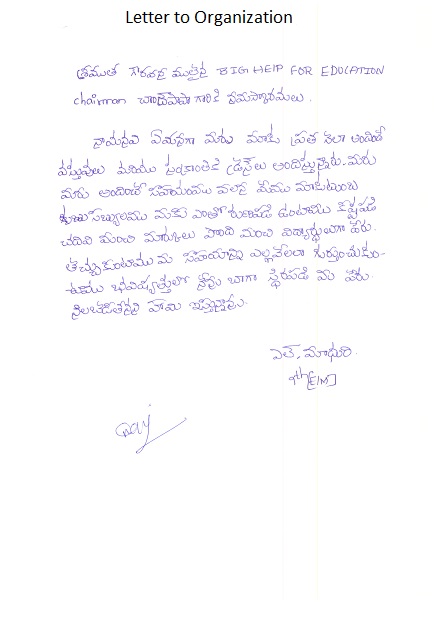 Letter to Organization
శ్రీయుత గౌరవనీయులైన BIG HELP FOR EDUCATION
chairman చాంద్‌పాషా గారికి నమస్కారములు.
నామనవి ఏమనగా మీరు మాకు ప్రతి నెలా అందించే
వస్తువులు మరియు సంక్రాంతికి డ్రెస్‌లు అందిస్తున్నారు. మీరు
మాకు అందించే సహాయము వలన మేము మాకుటుంబ
సభ్యులము మీకు ఎంతో రుణపడి ఉంటాము కష్టపడి
చదివి మంచి మార్కులు పొంది మంచి విద్యార్థులుగా పేరు.
తెచ్చుకుంటాము మీ సహాయాన్ని ఎల్లవేలలా గుర్తుంచుకుం-
టాము భవిష్యత్తులో నేను బాగా స్థిరపడి మీ పేరు.
నిలబెడతానని హామి ఇస్తున్నాను.
ఎల్. మాధురి.
9th [E/M]